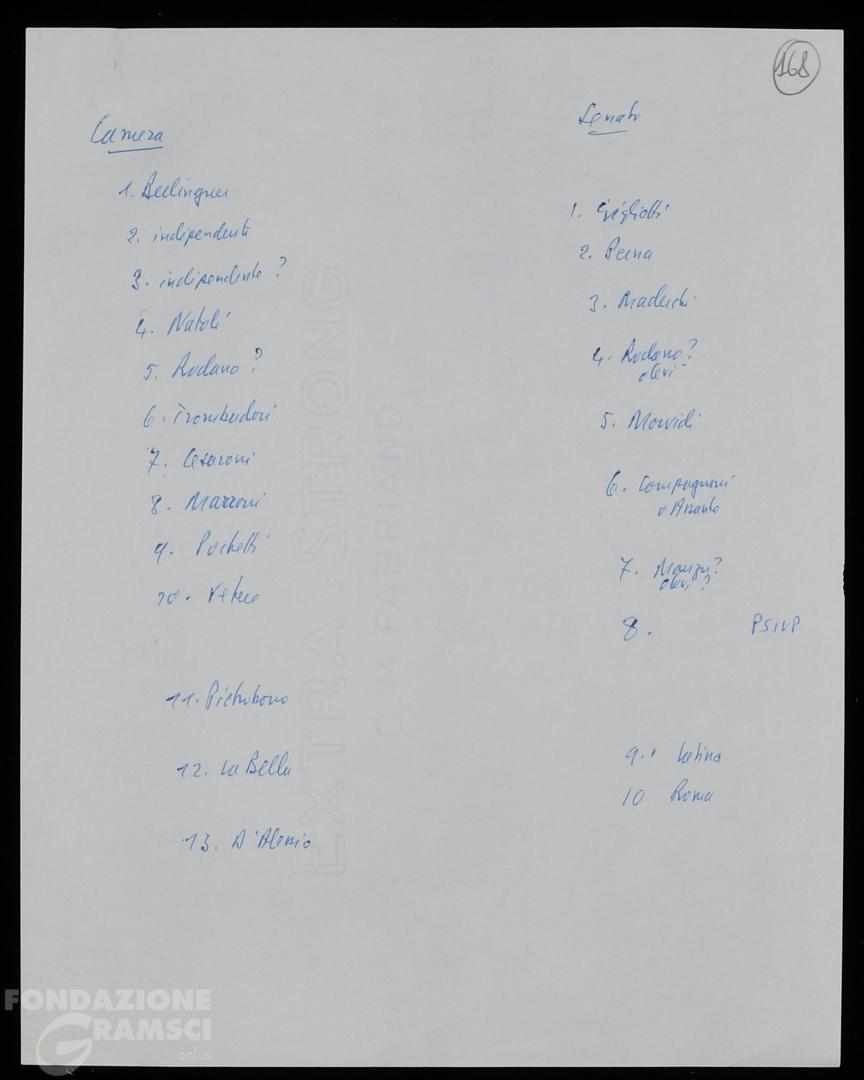 168
Camera
1. Berlinguer
2. indipendente
3. indipendente ?
4. Natoli
5. Rodano ?
6. Trombadori
7. Cesaroni
8. Mazzoni
9. Pochetti
10. Vetere
11. Pietrobono
12. La Bella
13. D'Alessio
Senato
1. Gigliotti
2. Perna
3. Maderchi
4. Rodano ?
5. Morvidi
6. Compagnoni
o Assante
7. ?
?
8. PSIUP
9. Latina
10 Roma
EXTRA STRONG
C.M. FABRIANO
FONDAZIONE
GRAMSCI
onlus